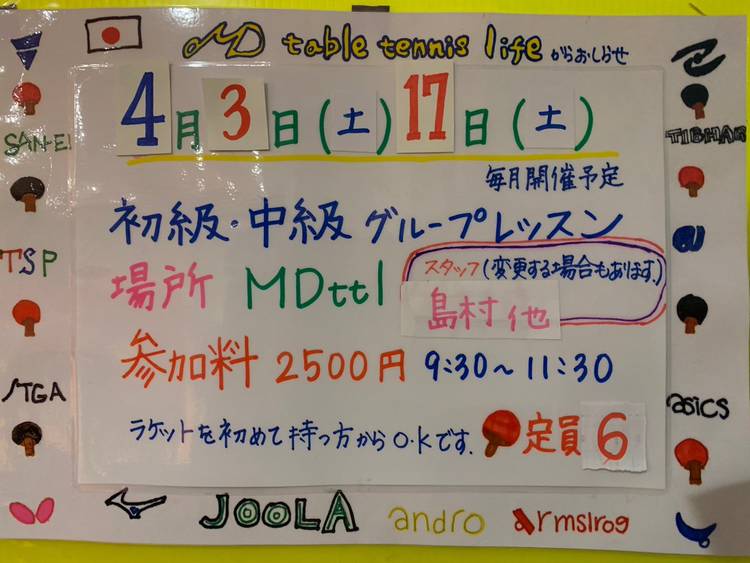 MD table tennis life からおしらせ
4月3日(土)17日(土)
毎月開催予定
初級・中級 グループレッスン
場所 MDttl
スタッフ(変更する場合もあります。)
島村 他
参加料 2500円 9:30~11:30
ラケットを初めて持つ方からO.Kです。
定員6
SAN-EI
TSP
STGA
TIBHAR
asics
JOOLA
andro
armslrog